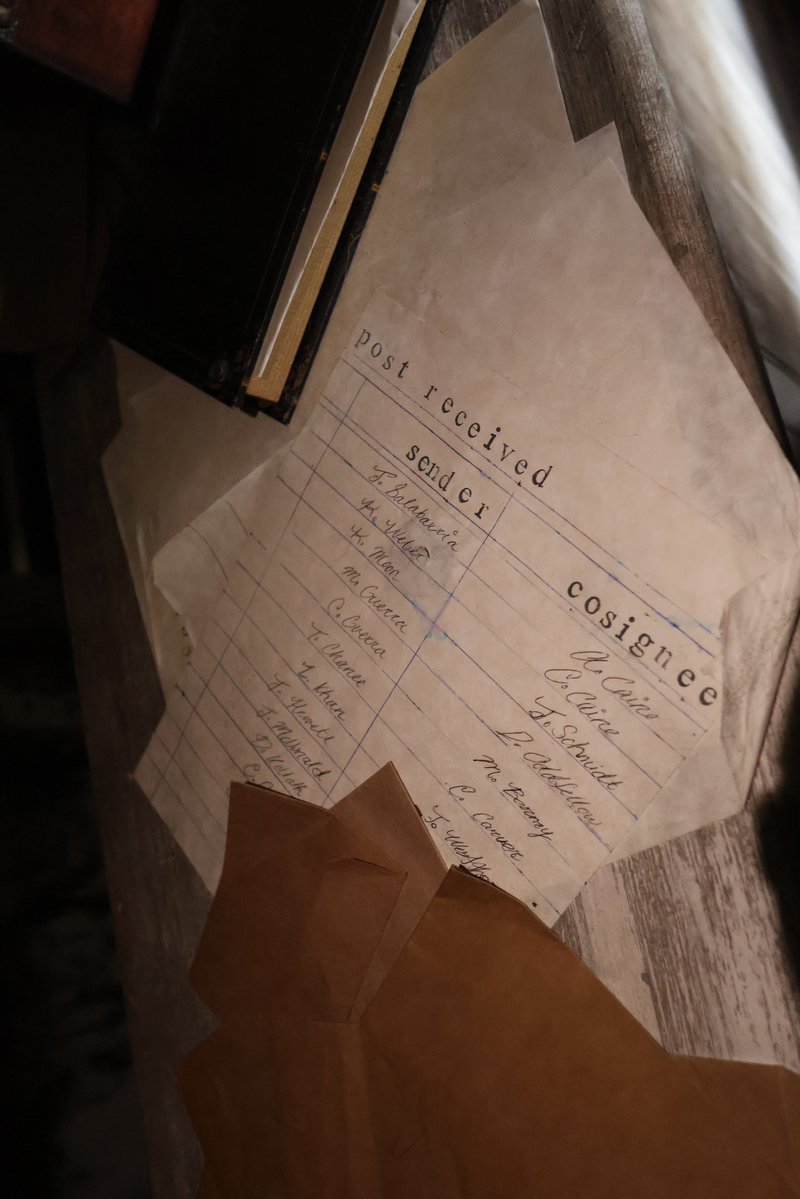 post received
sender cosignee
J. Salabarria A. Caine
K. Weber C. Caine
K. Moon J. Schmidt
M. Guerra D. Oddfellow
C. Guerra M.
T. Chanee C. Carver
L. Khan J.
J. Hewett
J. McDonald
D. Kollath
C.